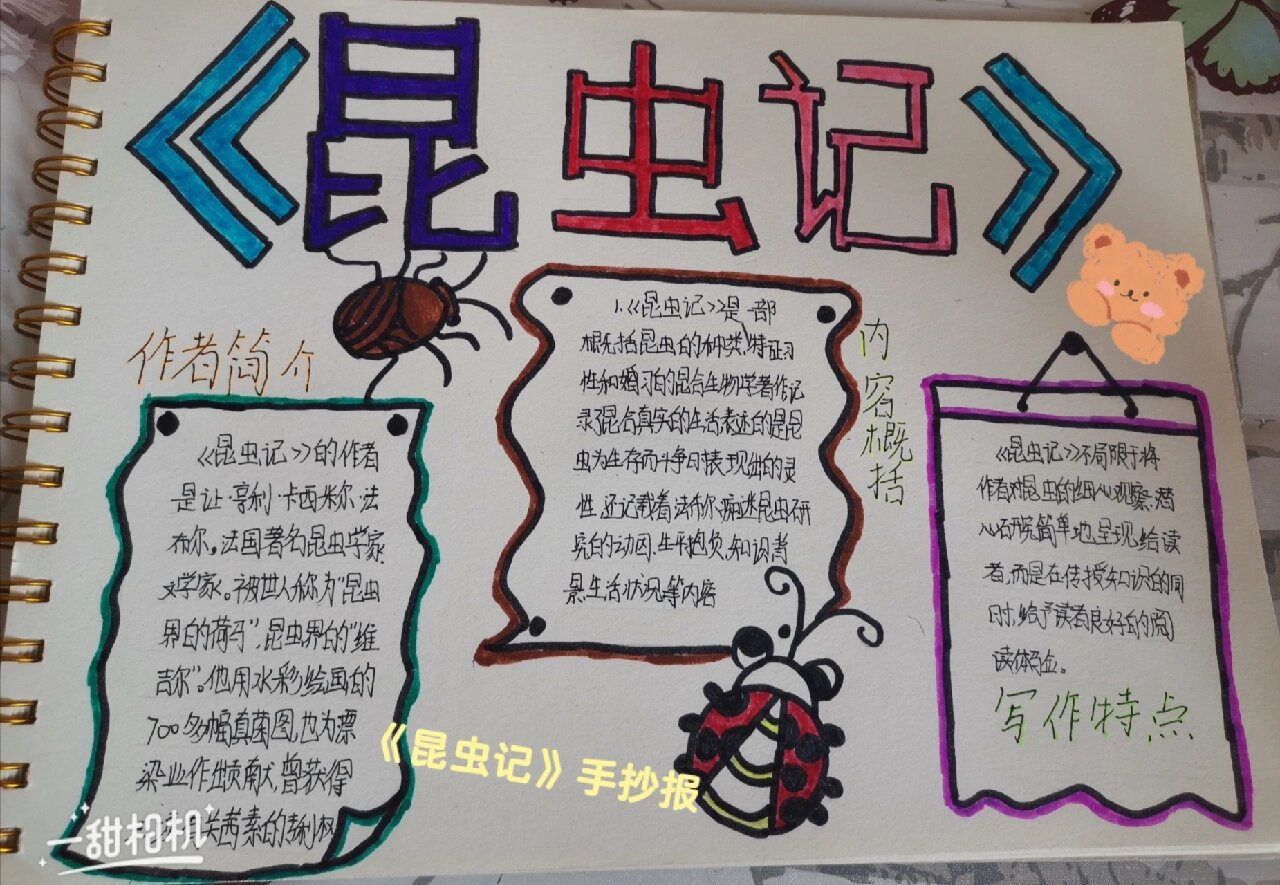 《昆虫记》
作者简介
《昆虫记》的作者
是让·亨利·卡西米尔·法
布尔。法国著名昆虫学家
文学家。被世人称为"昆虫
界的荷马",昆虫界的"维
吉尔"。他用水彩绘画的
700多幅真菌图,也为漂
染业作出贡献,曾获得
关茜素的专利权
内容概括
1.《昆虫记》是一部
概括昆虫的种类、特征习
性和婚习的昆虫生物学著作记
录了昆虫真实的生活表述的是昆
虫为生存而斗争时表现出的灵
性,还记载着法布尔痴迷昆虫研
究的动因、生平抱负,知识背
景生活状况等内容
《昆虫记》不局限于将
作者对昆虫的细心观察,潜
心研究简单地呈现给读
者,而是在传授知识的同
日寸,给予读者良好的阅
读体验。
写作特点
《昆虫记》手抄报
一甜相机